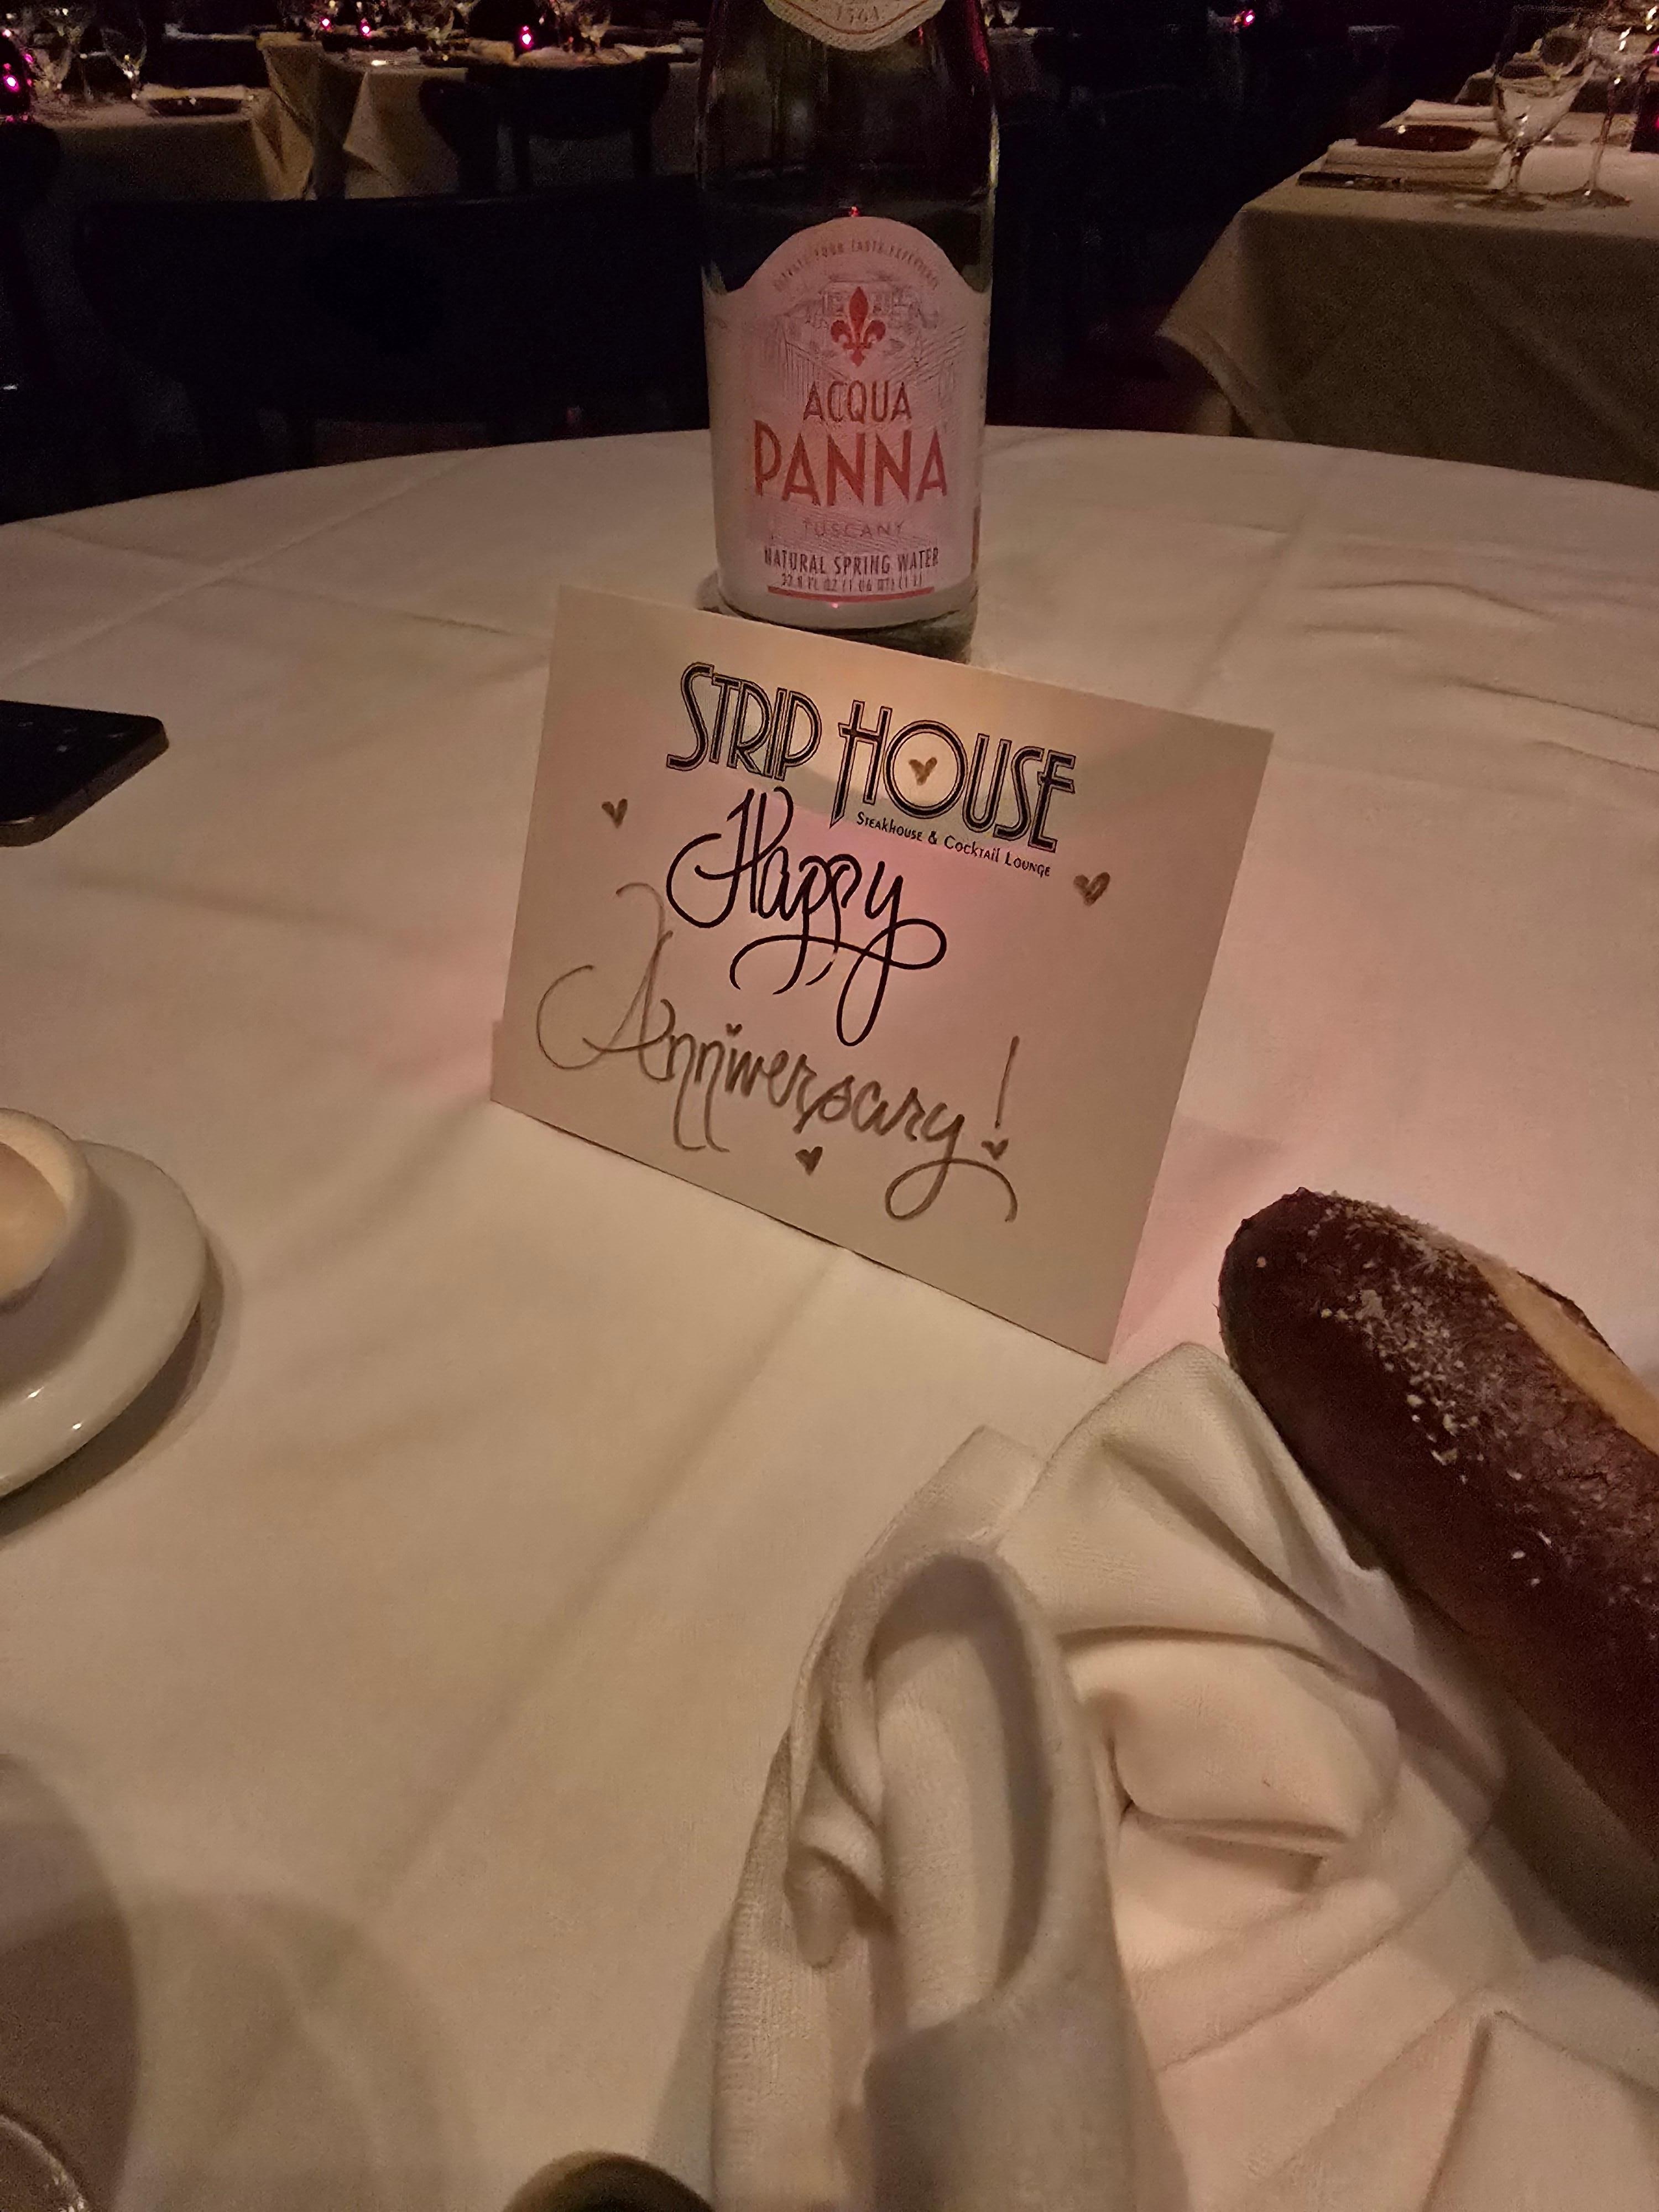 ACQUA
PANNA
TUSCANY
NATURAL SPRING WATER
STRIP HOUSE
Steakhouse & Cocktail Lounge
Happy
Anniversary!